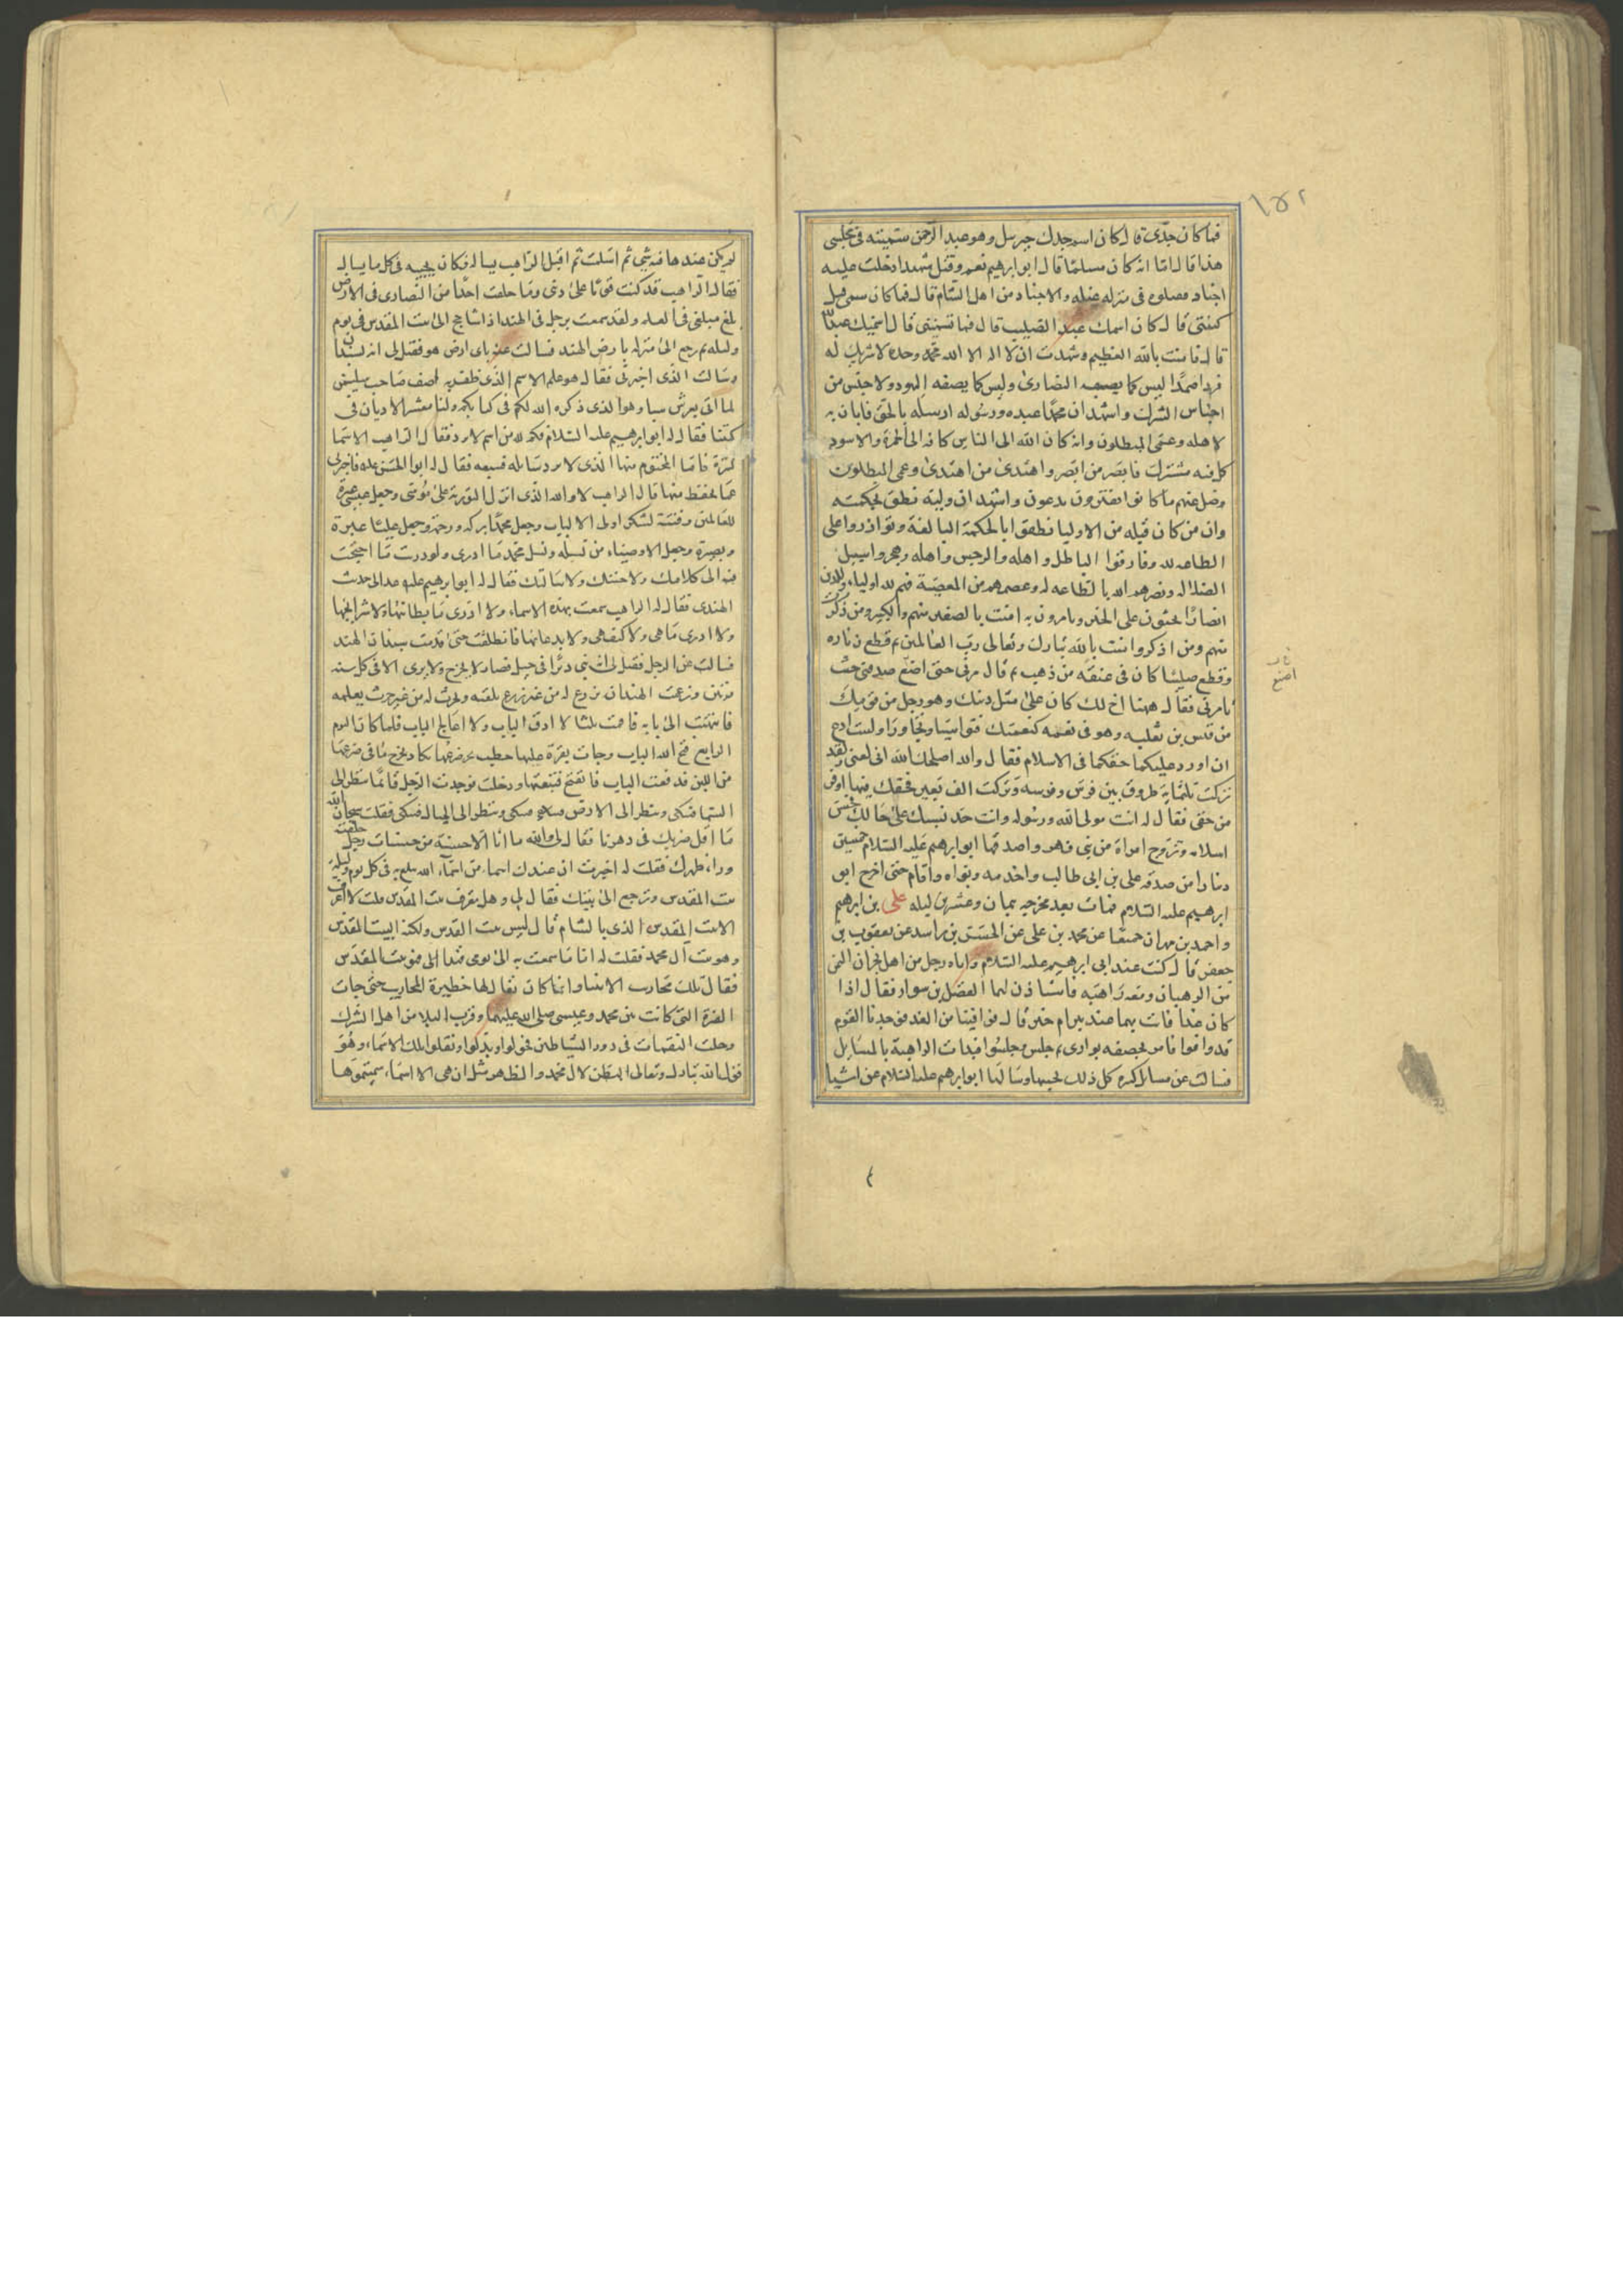 ١٤٢
فما كان جدى قال كان اسم جدك جبرئيل وهو عبد الرحمن سميته فى مجلسى
هذا قال اما انه كان مسلما قال ابو ابرهيم نعم وقتل شهيدا دخلت عليه
اجناد فقتلوه فى منزله غيله والاجناد من اهل الشام قال فما كان اسمى قبل
كنيتى قال كان اسمك عبد الصليب قال فما تسمينى قال اسميك عبد الله
قال فامنت بالله العظيم وشهدت ان لا اله الا الله وحده لا شريك له
فردا صمدا ليس كما يصفه النصارى وليس كما يصفه اليهود ولا جنس من
اجناس الشرك واشهد ان محمدا عبده ورسوله ارسله بالحق فابان به
لاهله وعمى المبطلون وانه كان رسول الله الى الناس كافه الى الاحمر والاسود
كل فيه مشترك فابصر من ابصر واهتدى من اهتدى وعمى المبطلون
وضل عنهم ما كانوا يدعون واشهد ان وليه نطق بحكمته
وان من كان قبله من الاوليا نطقوا بالحكمة البالغة وتوازروا على
الطاعه لله وفارقوا الباطل واهله والرجس واهله وهجروا سبيل
الضلاله ونصرهم الله بالطاعه له وعصمهم من المعصية فهم لله اولياء وللدين
انصارا يحثون على الخير ويامرون به امنت بالصغير منهم والكبير ومن ذكرت
منهم ومن لم اذكر وامنت بالله تبارك وتعالى رب العالمين ثم قطع زناره
وقطع صليبا كان فى عنقه من ذهب ثم قال مرنى حتى اضع صدقتى حيث
تامرنى فقال ههنا اخ لك كان على مثل دينك وهو رجل من قومك
من قيس بن ثعلبه وهو فى نعمه كنعمتك فتواسيا وتجاورا ولست ادع
ان اورد عليكما حقكما فى الاسلام فقال والله اصلحك الله انى لغنى ولقد
تركت ثلثمايه طروق بين فرس وفرسه وتركت الف بعير فحقك فيها اوفر
من حقى فقال له انت مولى الله ورسوله وانت حد نسبك على حالك فحسن
اسلامه وتزوج امراة من بنى فهر واصدقها ابو ابرهيم عليه السلام خمسين
دينارا من صدقه على بن ابى طالب واخدمه وبواه واقام حتى اخرج ابو
ابرهيم عليه السلام فمات بعد مخرجه بثمان وعشرين ليله على بن ابرهيم
واحمد بن مهران جميعا عن محمد بن على عن الحسن بن راشد عن يعقوب بن
جعفر قال كنت عند ابى ابرهيم عليه السلام واتاه رجل من اهل نجران اليمن
من الرهبان ومعه راهبه فاستاذن لهما الفضل بن سوار فقال اذا
كان غدا فات بهما عند بير ام خير قال فوافينا من الغد فوجدنا القوم
قد وافوا فامر بخصفه بوارى ثم جلس وجلسوا فبدات الراهبة بالمسايل
فسالت عن مسايل كثيره كل ذلك يجيبها وسالها ابو ابرهيم عليه السلام عن اشيا
لم يكن عندها فيه شى ثم اسلمت ثم اقبل الراهب يساله فكان يجيبه فى كل ما يساله
فقال الراهب قد كنت قويا على دينى وما خلفت احدا من النصارى فى الارض
بلغ مبلغى فى العلم ولقد سمعت برجل فى الهند اذا شا حج الى بيت المقدس فى يوم
وليله ثم رجع الى منزله بارض الهند فسالت عنه باى ارض هو فقيل لى انه بسندان
وسالت الذى اخبرنى فقال هو علم الاسم الذى ظفر به اصف صاحب سليمن
لما اتى بعرش سبا وهو الذى ذكره الله لكم فى كتابكم ولنا معشر الاديان فى
كتبنا فقال له ابو ابرهيم عليه السلام فكم لله من اسم لا يرد فقال الراهب الاسما
كثيرة فاما المحتوم منها الذى لا يرد سائله فسبعه فقال له ابو الحسن عليه فاخبرنى
عما تحفظ منها قال الراهب لا والله الذى انزل التورية على موسى وجعل عيسى عبرة
للعالمين وفتنة لشكر اولى الالباب وجعل محمدا بركه ورحمة وجعل عليا عبرة
وبصيرة وجعل الاوصياء من نسله ونسل محمد ما ادرى ولو دريت ما احتجت
فيه الى كلامك ولا جئتك ولا سالتك فقال له ابو ابرهيم عليه عد الى حديث
الهندى فقال له الراهب سمعت بهذه الاسماء ولا ادرى ما بطائنها ولا شرائحها
ولا ادرى ما هى ولا كيف هى ولا بدعائها فانطلقت حتى قدمت سندان الهند
فسالت عن الرجل فقيل لى انه بنى ديرا فى جبل فصار لا يخرج ولا يرى الا فى كل سنه
مرتين وزعمت الهند ان زرع له من غير زرع يلقيه وحرث له من غير حرث يعلمه
فانتهيت الى بابه فاقمت ثلثا لا ادق الباب ولا اعالج الباب فلما كان اليوم
الرابع فتح الله الباب وجات بقرة عليها حطب تجر ضرعها يكاد يخرج ما فى ضرعها
من اللبن فدفعت الباب فانفتح فتبعتها ودخلت فوجدت الرجل قائما ينظر الى
السما فيبكى وينظر الى الارض فيبكى وينظر الى الجبال فيبكى فقلت سبحان الله
ما اقل ضربك فى دهرنا فقال لى والله ما انا الا حسنة من حسنات رجل خلفته
وراء ظهرك فقلت له اخبرت ان عندك اسماء من اسماء الله تبلغ به فى كل يوم وليلة
بيت المقدس وترجع الى بيتك فقال لى وهل تعرف بيت المقدس قلت لا اعرف
الا بيت المقدس الذى بالشام قال ليس بيت المقدس ولكنه البيت المقدس
وهو بيت آل محمد فقلت له اما ما سمعت به الى يومى هذا فهو بيت المقدس
فقال تلك محاريب الانبيا وانما كان يقال لها حظيرة المحاريب حتى جات
الفترة التى كانت بين محمد وعيسى صلى الله عليهما وقرب البلا من اهل الشرك
وحلت النقمات فى دور الشياطين فحولوا وبدلوا ونقلوا تلك الاسماء وهو
قول الله تبارك وتعالى البطن لآل محمد والظهر مثل ان هى الا اسماء سميتموها